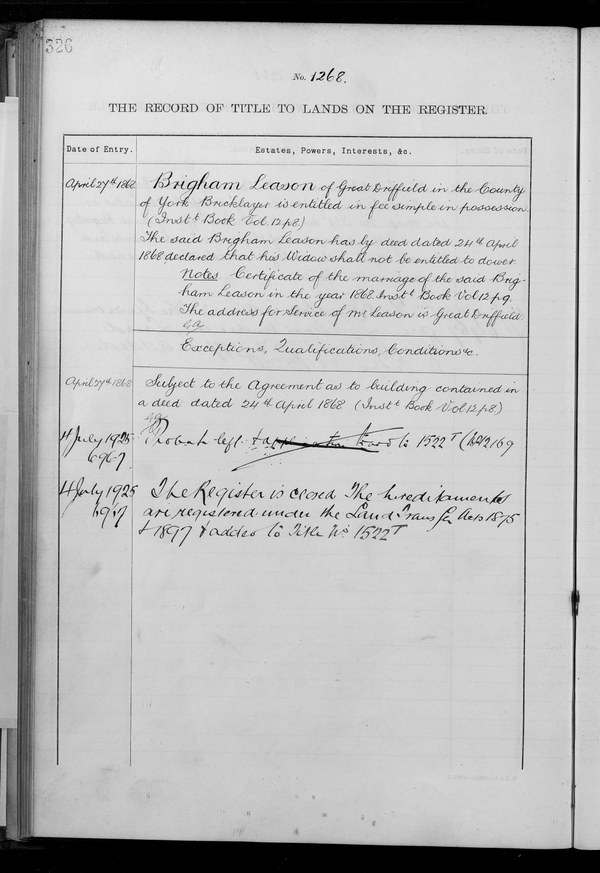 326
No. 1268.
THE RECORD OF TITLE TO LANDS ON THE REGISTER.
Date of Entry. Estates, Powers, Interests, &c.
April 27th 1868 Brigham Leason of Great Driffield in the County
of York Bricklayer is entitled in fee simple in possession.
(Instt Book Vol. 12 p 8.)
The said Brigham Leason has by deed dated 24th April
1868 declared that his Widow shall not be entitled to dower.
Notes Certificate of the marriage of the said Brig-
ham Leason in the year 1868. Instt Book Vol 12 p 9.
The address for Service of Mr Leason is Great Driffield.
Exceptions, Qualifications, Conditions &c.
April 27th 1868 Subject to the Agreement as to building contained in
a deed dated 24th April 1868 (Instt Book Vol 12 p 8)
4 July 1925 Probate left + application to 1522 T
6967
4 July 1925 The Register is closed The hereditaments
6967 are registered under the Land Transfer Acts 1875
+ 1897 + added to Title No. 1522 T